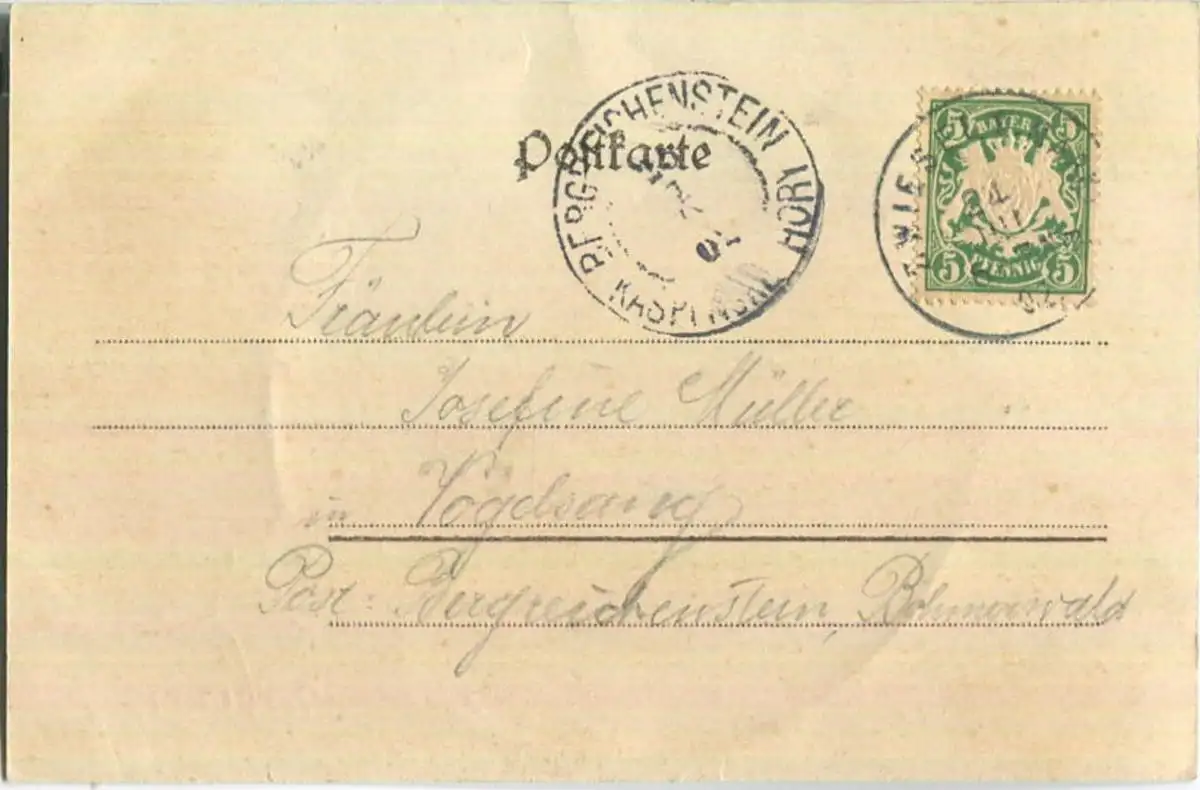 Postkarte
BERGREICHENSTEIN
KASP
5 BAYERN 5
5 PFENNIG 5
Fräulein
Josefine Müller
in Vogelsang
Post: Bergreichenstein, Böhmerwald